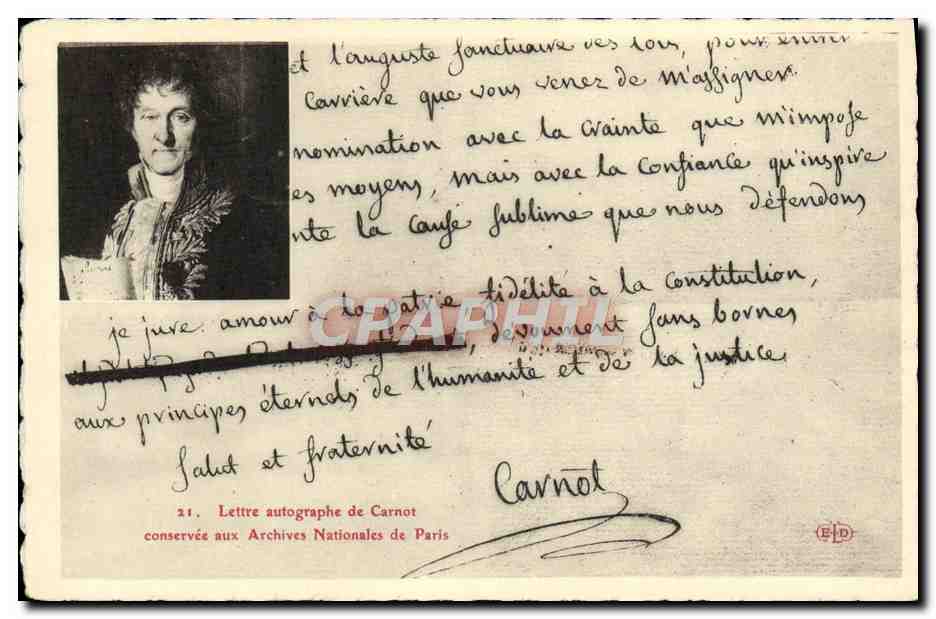 et l'auguste sanctuaire des lois, pour
carrière que vous venez de m'assigner.
nomination avec la crainte que m'impose
es moyens, mais avec la confiance qu'inspire
nte la cause sublime que nous défendons
je jure amour à la patrie fidélité à la constitution,
, dévoument sans bornes
aux principes éternels de l'humanité et de la justice
salut et fraternité
Carnot
21. Lettre autographe de Carnot
conservée aux Archives Nationales de Paris
ELD
CPAPHIL